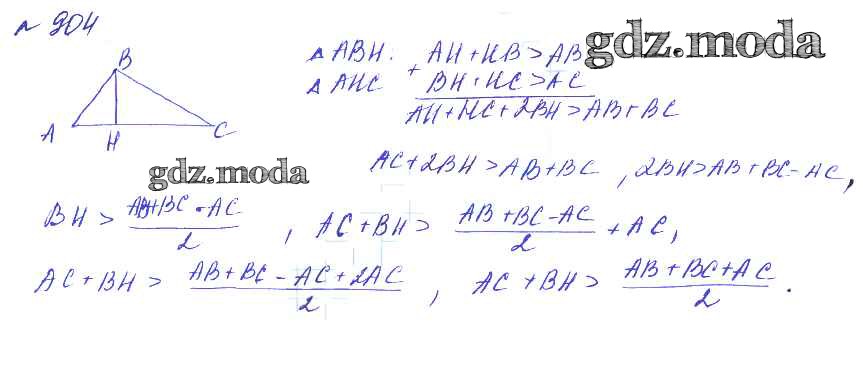 № 904
B
A H C
△ ABH: AH + HB > AB
△ AHC + BH + HC > AC
AH + HC + 2BH > AB + BC
gdz.moda
AC + 2BH > AB + BC , 2BH > AB + BC - AC ,
gdz.moda
BH > AB + BC - AC / 2 , AC + BH > AB + BC - AC / 2 + AC ,
AC + BH > AB + BC - AC + 2AC / 2 , AC + BH > AB + BC + AC / 2 .